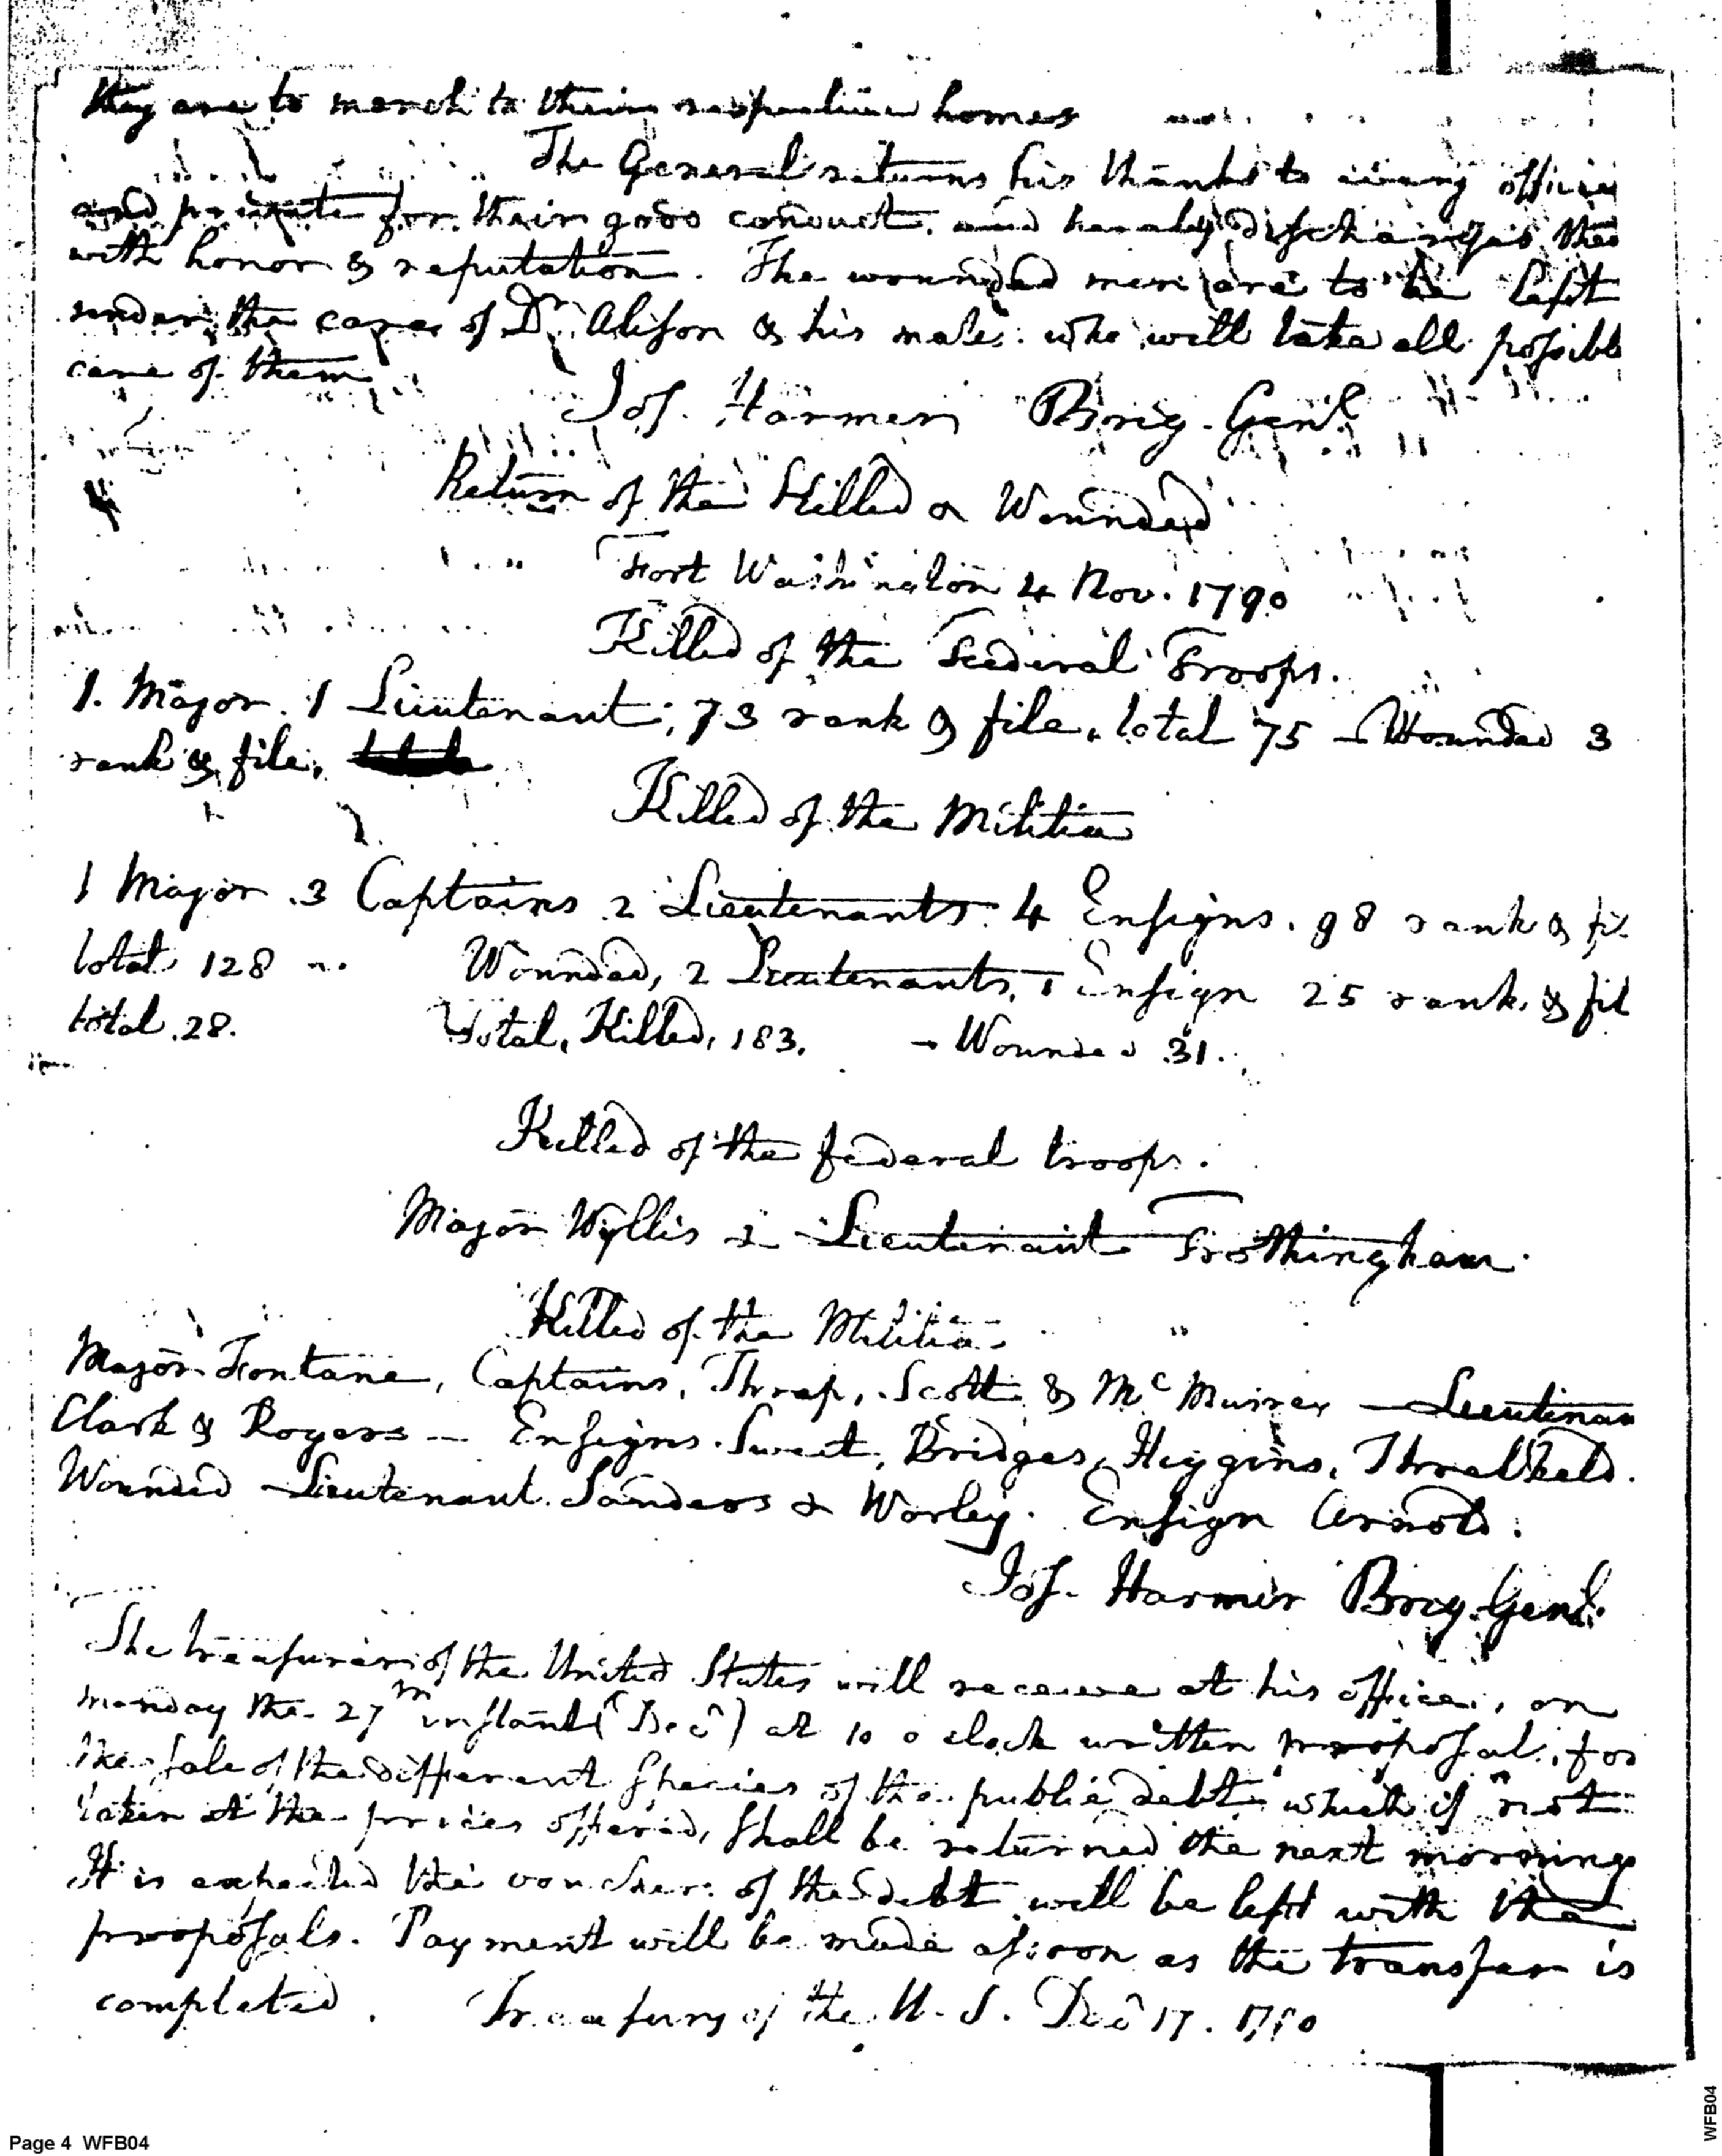 they are to march to their respective homes
The General returns his thanks to every officer
and private for their good conduct, and hereby discharges them
with honor & reputation. The wounded men are to be left
under the care of Dr. Alison & his mates who will take all possible
care of them
Jos. Harmer Brig. Genl.
Return of the Killed & Wounded
Fort Washington 4 Nov. 1790
Killed of the Fœderal Troops.
1. Major. 1 Lieutenant; 73 rank & file, total 75 — Wounded 3
rank & file,
Killed of the Militia
1 Major. 3 Captains 2 Lieutenants. 4 Ensigns. 98 rank & fil
total 128 Wounded, 2 Lieutenants, 1 Ensign 25 rank & fil
total .28. Total, Killed, 183. — Wounded 31.
Killed of the federal troops.
Major Wyllis & Lieutenant Frothingham.
Killed of the Militia
Major Fontane, Captains, Thrap, Scott & McMurrey — Lieutenan
Clark & Rogers — Ensigns. Sweet, Bridges, Higgins, Threlkeld.
Wounded Lieutenant. Sanders & Worley. Ensign Arnold.
Jos. Harmer Brig. Genl.
The treasurer of the United States will receive at his office, on
monday the 27th instant (Decr) at 10 o clock written proposals, for
the sale of the different species of the public debt which if not
taken at the prices offered, shall be returned the next morning
It is expected the vouchers of the debt will be left with the
proposals. Payment will be made as soon as the transfer is
completed. Treasury of the U. S. Decr 17. 1790
Page 4 WFB04
WFB04